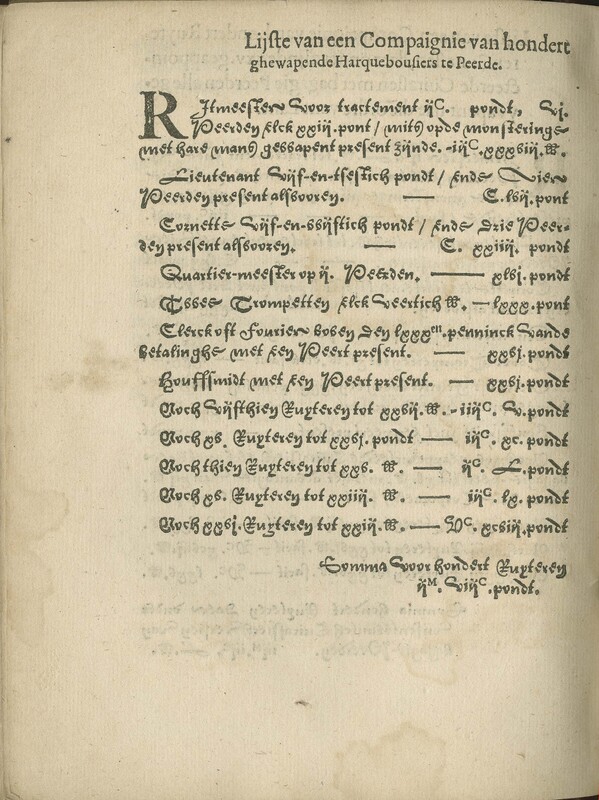 Lijste van een Compaignie van hondert
ghewapende Harquebousiers te Peerde.
RItmeester voor tractement ijC. pondt, vj.
Peerden elck xxiij. pont / mits opde monsteringe
met hare mans gewapent present zijnde. -iijC.xxxviij.℔.
Lieutenant vijf-en-tsestich pondt / ende vier
Peerden present alsvooren. — C.lvij.pont
Cornette vijf-en-vijftich pondt / ende drie Peer-
den present alsvooren. — C. xxiiij. pondt
Quartier-meester op ij. Peerden. — xlvj.pondt
Twee Trompetten elck veertich ℔. — lxxx.pont
Clerck oft Fourier boven den lxxxen.penninck vande
betalinghe met een Peert present. — xxvj.pondt
Houffsmidt met een Peert present. — xxvj.pondt
Noch vijfthien Ruyteren tot xxvij.℔.- iiijC. v.pondt
Noch xv. Ruyteren tot xxvj.pondt — iijC. xc.pondt
Noch thien Ruyteren tot xxv. ℔. — ijC. L.pondt
Noch xv. Ruyteren tot xxiiij. ℔. — iijC. lx.pondt
Noch xxvj.Ruyteren tot xxiij. ℔. — VC. xcviij.pondt
Somma voor hondert Ruyteren
ijM. viijC.pondt.